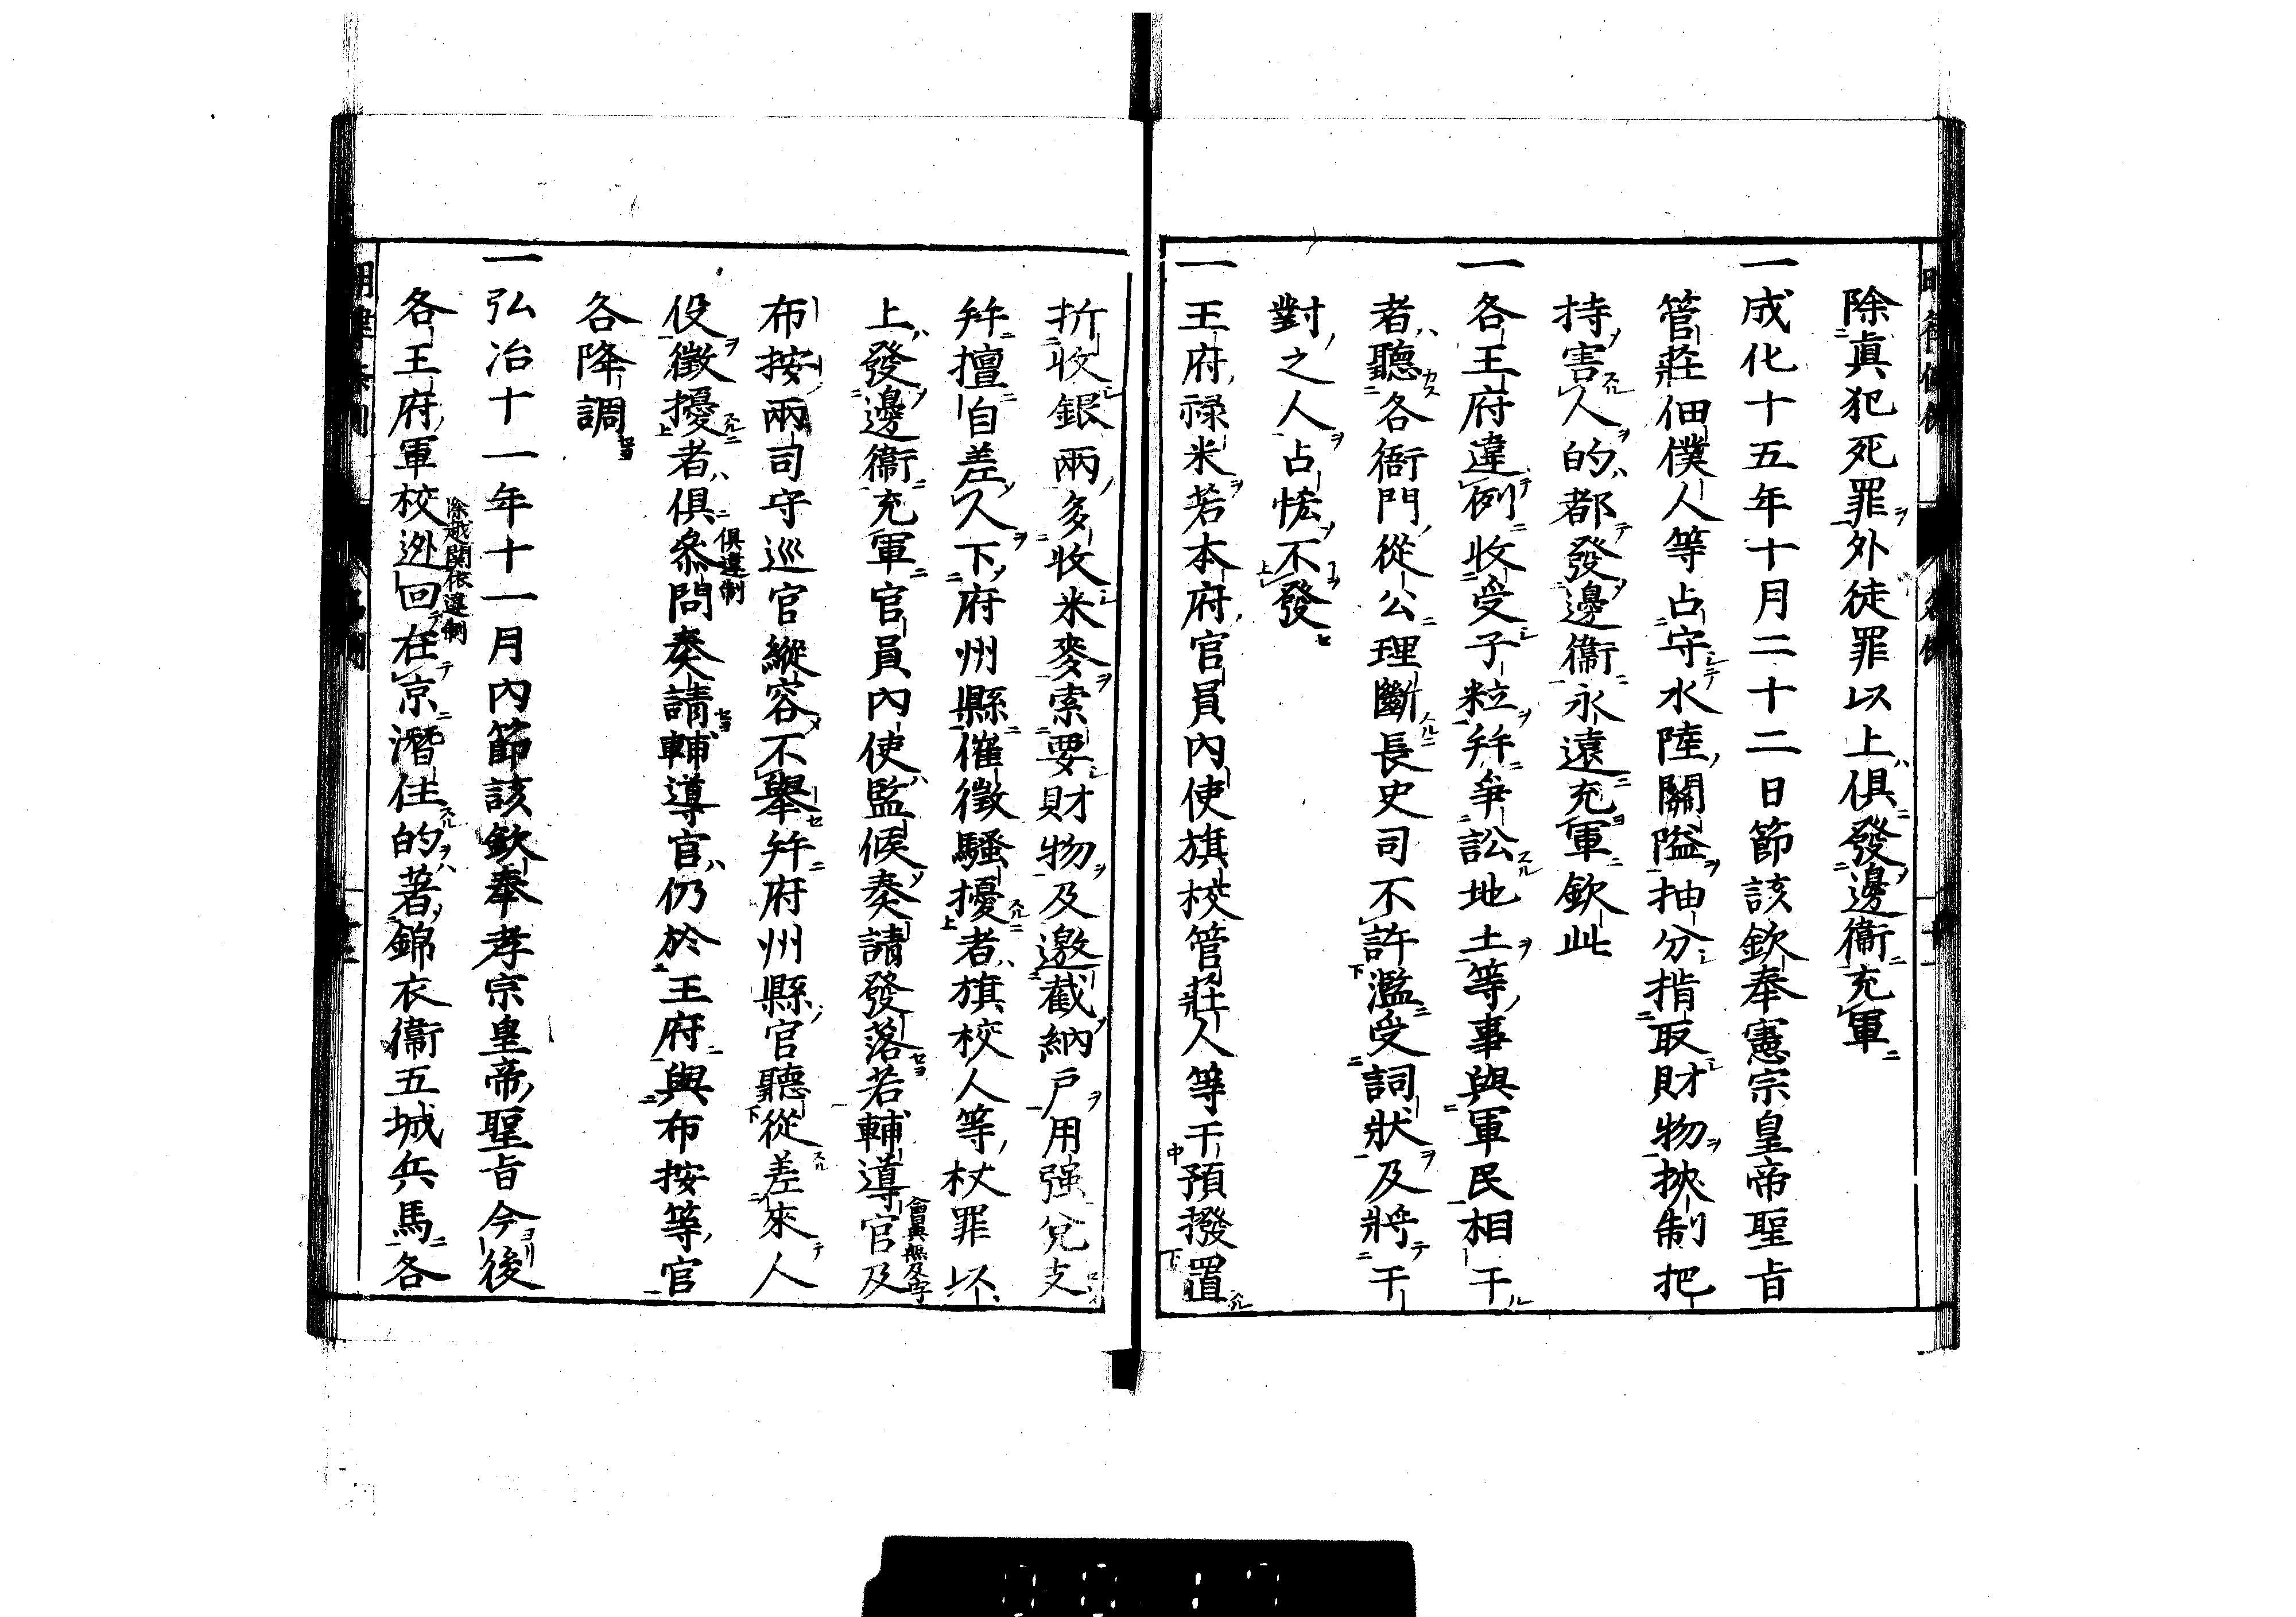 除眞犯死罪外徒罪以上俱發邊衞充軍
一成化十五年十月二十二日節該欽奉憲宗皇帝聖旨
管莊佃僕人等占守水陸關隘抽分掯取財物挾制把
持害人的都發邊衞永遠充軍欽此
一各王府違例收受子粒幷爭訟地土等事與軍民相干
者聽各衙門從公理斷長史司不許濫受詞狀及將干
對之人占恡不發
一王府祿米若本府官員內使旗校管莊人等干預撥置
折收銀兩多收米麥索要財物及邀截納戶用强兌支
幷擅自差人下府州縣催徵騷擾者旗校人等杖罪以
上發邊衞充軍官員內使監候奏請發落若輔導官及
會典無及字
布按兩司守巡官縱容不舉幷府州縣官聽從差來人
役徵擾者俱參問奏請輔導官仍於王府與布按等官
俱違制
各降調
一弘治十一年十一月內節該欽奉孝宗皇帝聖旨今後
各王府軍校迯回在京潛住的著錦衣衞五城兵馬各
除越関依違制